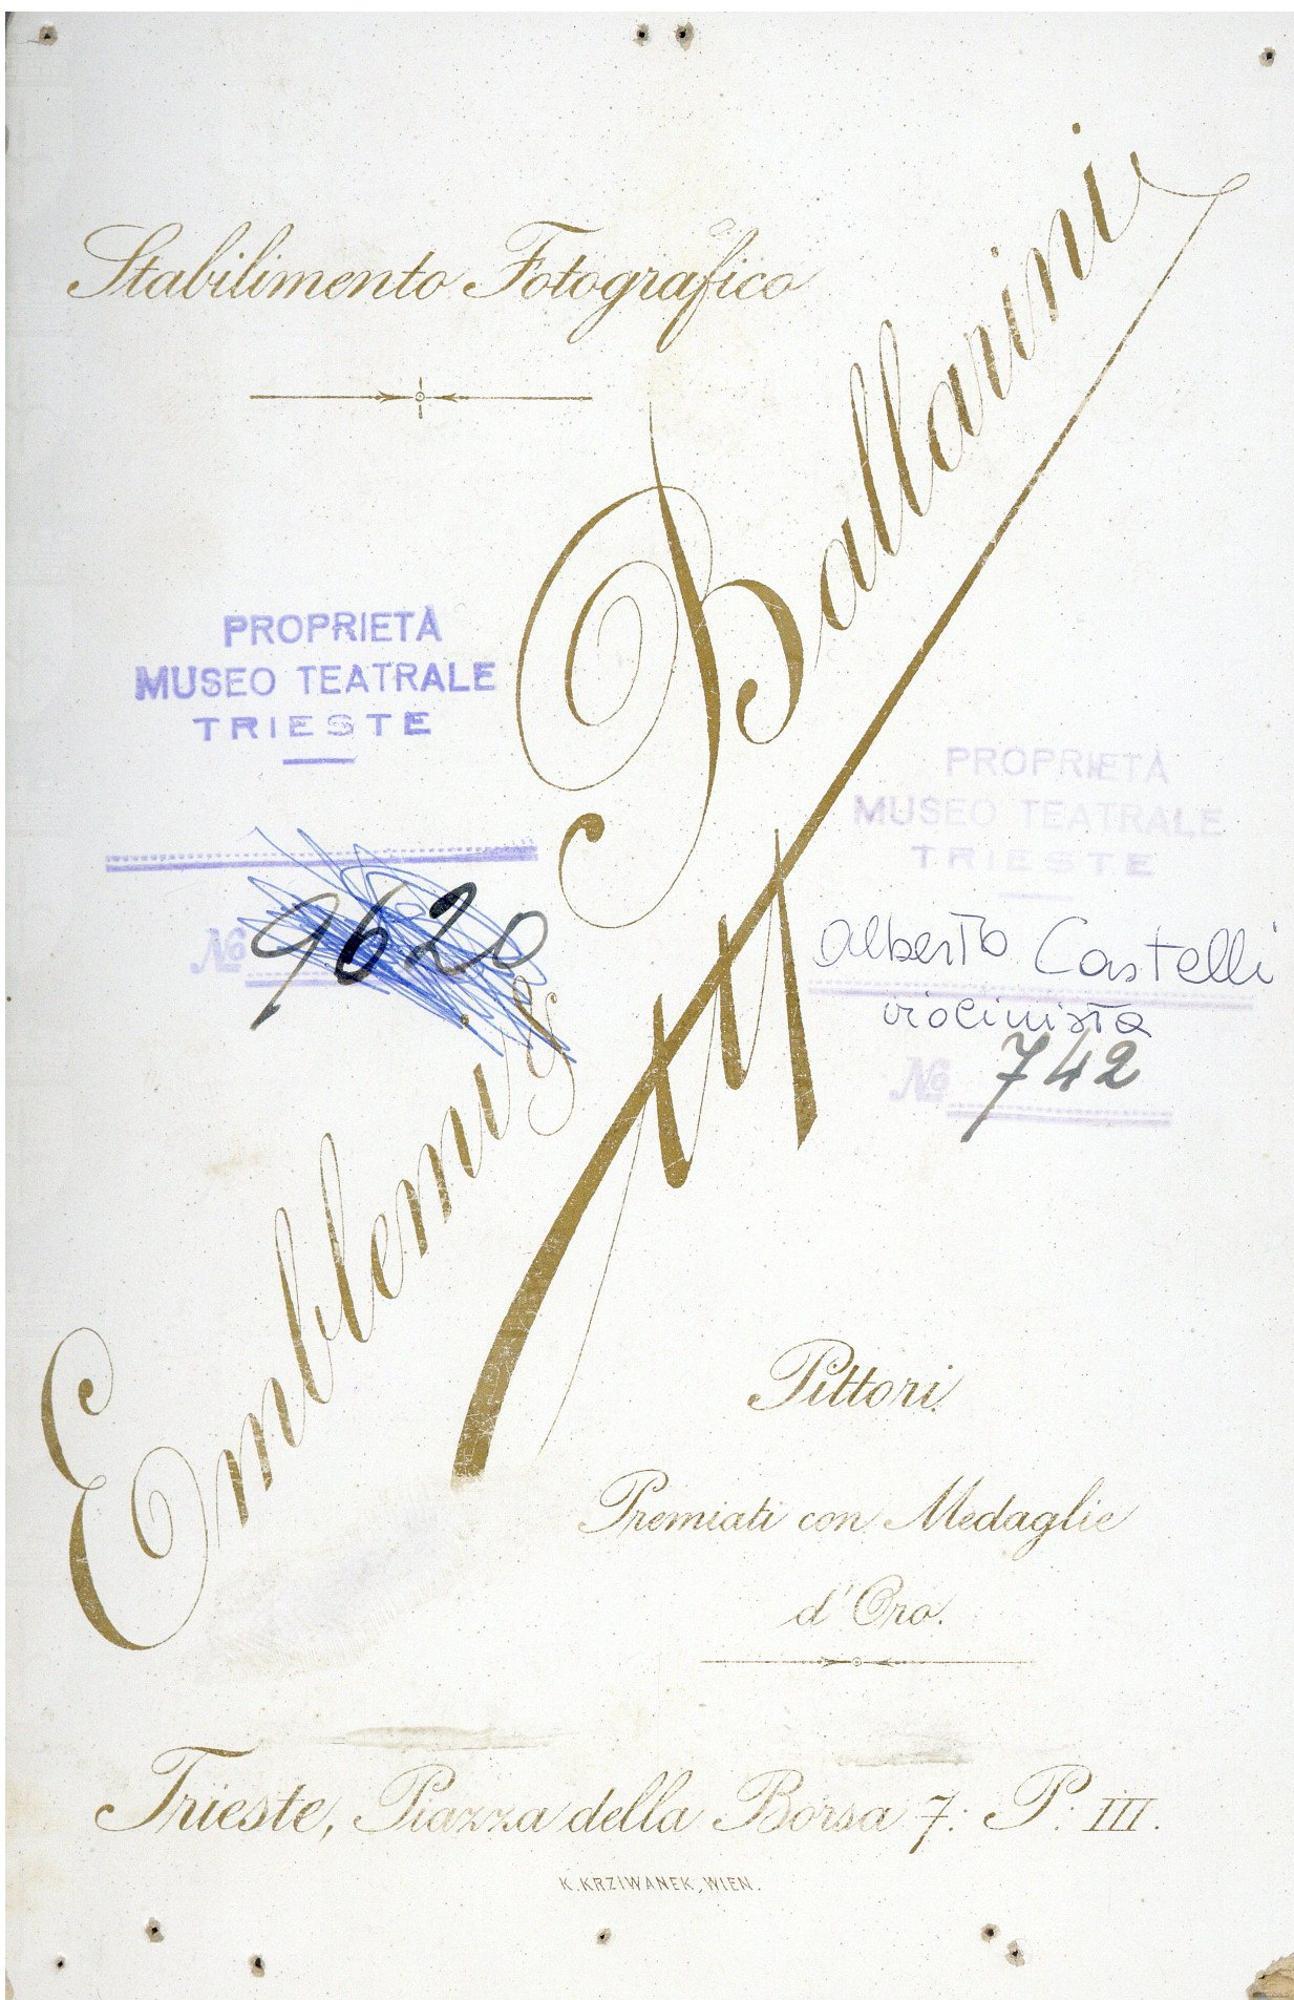 Stabilimento Fotografico
Emblemi & Ballarini
PROPRIETÀ
MUSEO TEATRALE
TRIESTE
No 9620
PROPRIETÀ
MUSEO TEATRALE
TRIESTE
Alberto Castelli
violinista
No 742
Pittori
Premiati con Medaglie
d'Oro.
Trieste, Piazza della Borsa 7: P: III.
K. KRZIWANEK, WIEN.